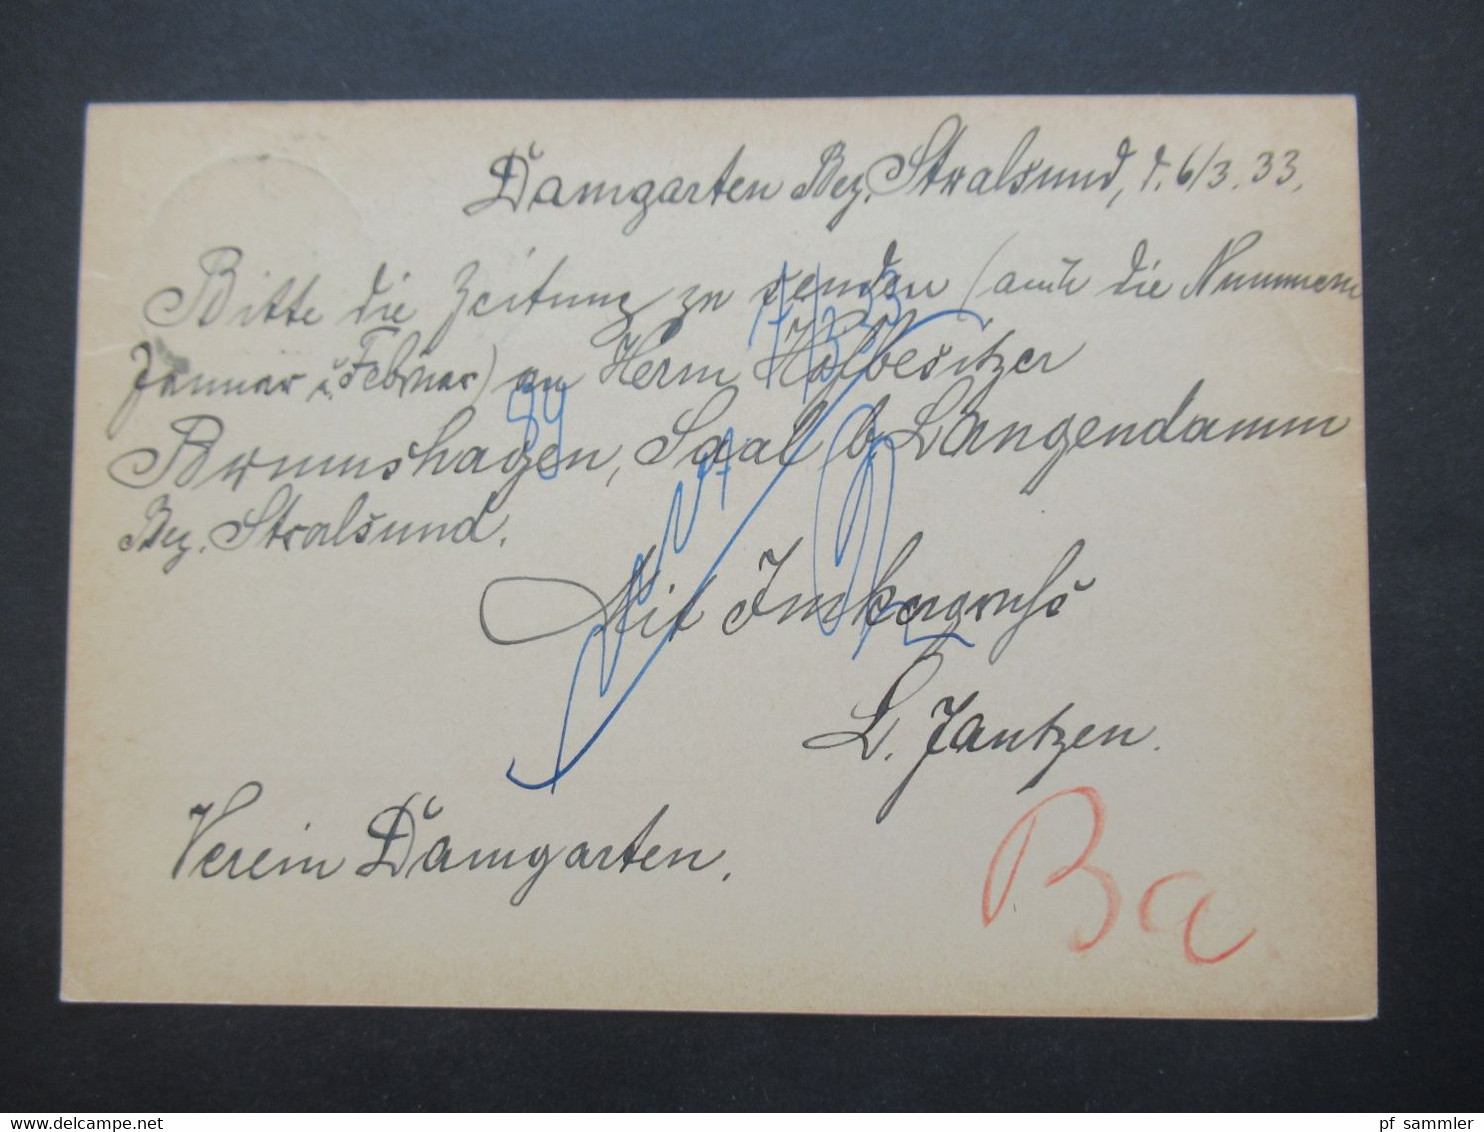 Damgarten Bez. Stralsund, d. 6/3. 33.
Bitte die Zeitung zu senden (auch die Nummern
Januar u. Februar) an Herrn Hofbesitzer
Brumshagen, Saal b. Langendamm
Bez. Stralsund.
7/3 33
89
Mit Imkergruß
L. Jantzen.
Verein Damgarten.
Ba
www.delcampe.net
pf_sammler